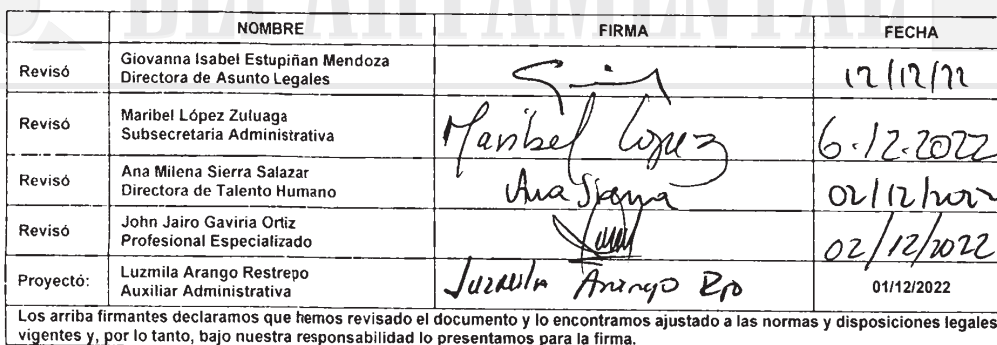 DEPARTAMENTAL
NOMBRE FIRMA FECHA
Revisó Giovanna Isabel Estupiñan Mendoza
Directora de Asunto Legales 12/12/22
Revisó Maribel López Zuluaga
Subsecretaria Administrativa Maribel López 6.12.2022
Revisó Ana Milena Sierra Salazar
Directora de Talento Humano Ana Sierra 02/12/2022
Revisó John Jairo Gaviria Ortiz
Profesional Especializado 02/12/2022
Proyectó: Luzmila Arango Restrepo
Auxiliar Administrativa Luzmila Arango Rpo 01/12/2022
Los arriba firmantes declaramos que hemos revisado el documento y lo encontramos ajustado a las normas y disposiciones legales
vigentes y, por lo tanto, bajo nuestra responsabilidad lo presentamos para la firma.